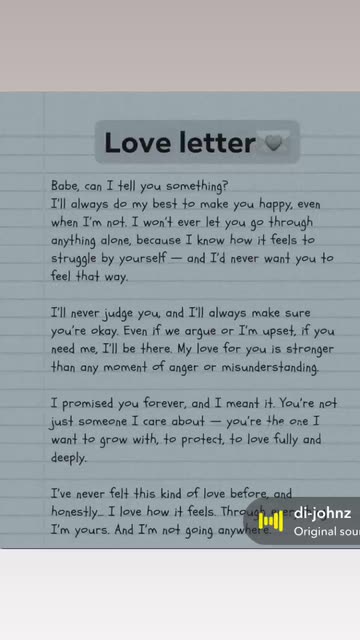 Love letter
Babe, can I tell you something?
I'll always do my best to make you happy, even
when I'm not. I won't ever let you go through
anything alone, because I know how it feels to
struggle by yourself — and I'd never want you to
feel that way.
I'll never judge you, and I'll always make sure
you're okay. Even if we argue or I'm upset, if you
need me, I'll be there. My love for you is stronger
than any moment of anger or misunderstanding.
I promised you forever, and I meant it. You're not
just someone I care about — you're the one I
want to grow with, to protect, to love fully and
deeply.
I've never felt this kind of love before, and
honestly... I love how it feels. Through
I'm yours. And I'm not going anywhere.
di-johnz
Original sou